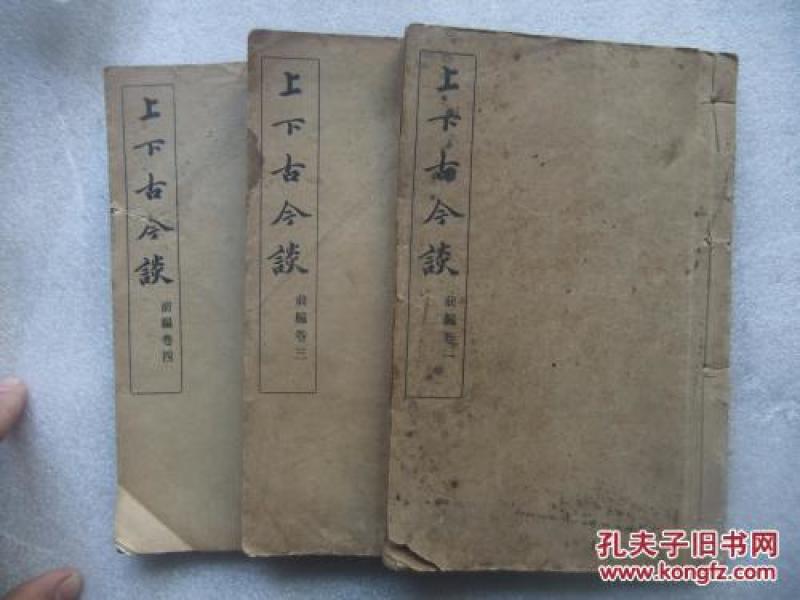 上下古今談
前編卷四
上下古今談
前編卷三
上下古今談
前編卷一
孔夫子旧书网
www.kongfz.com